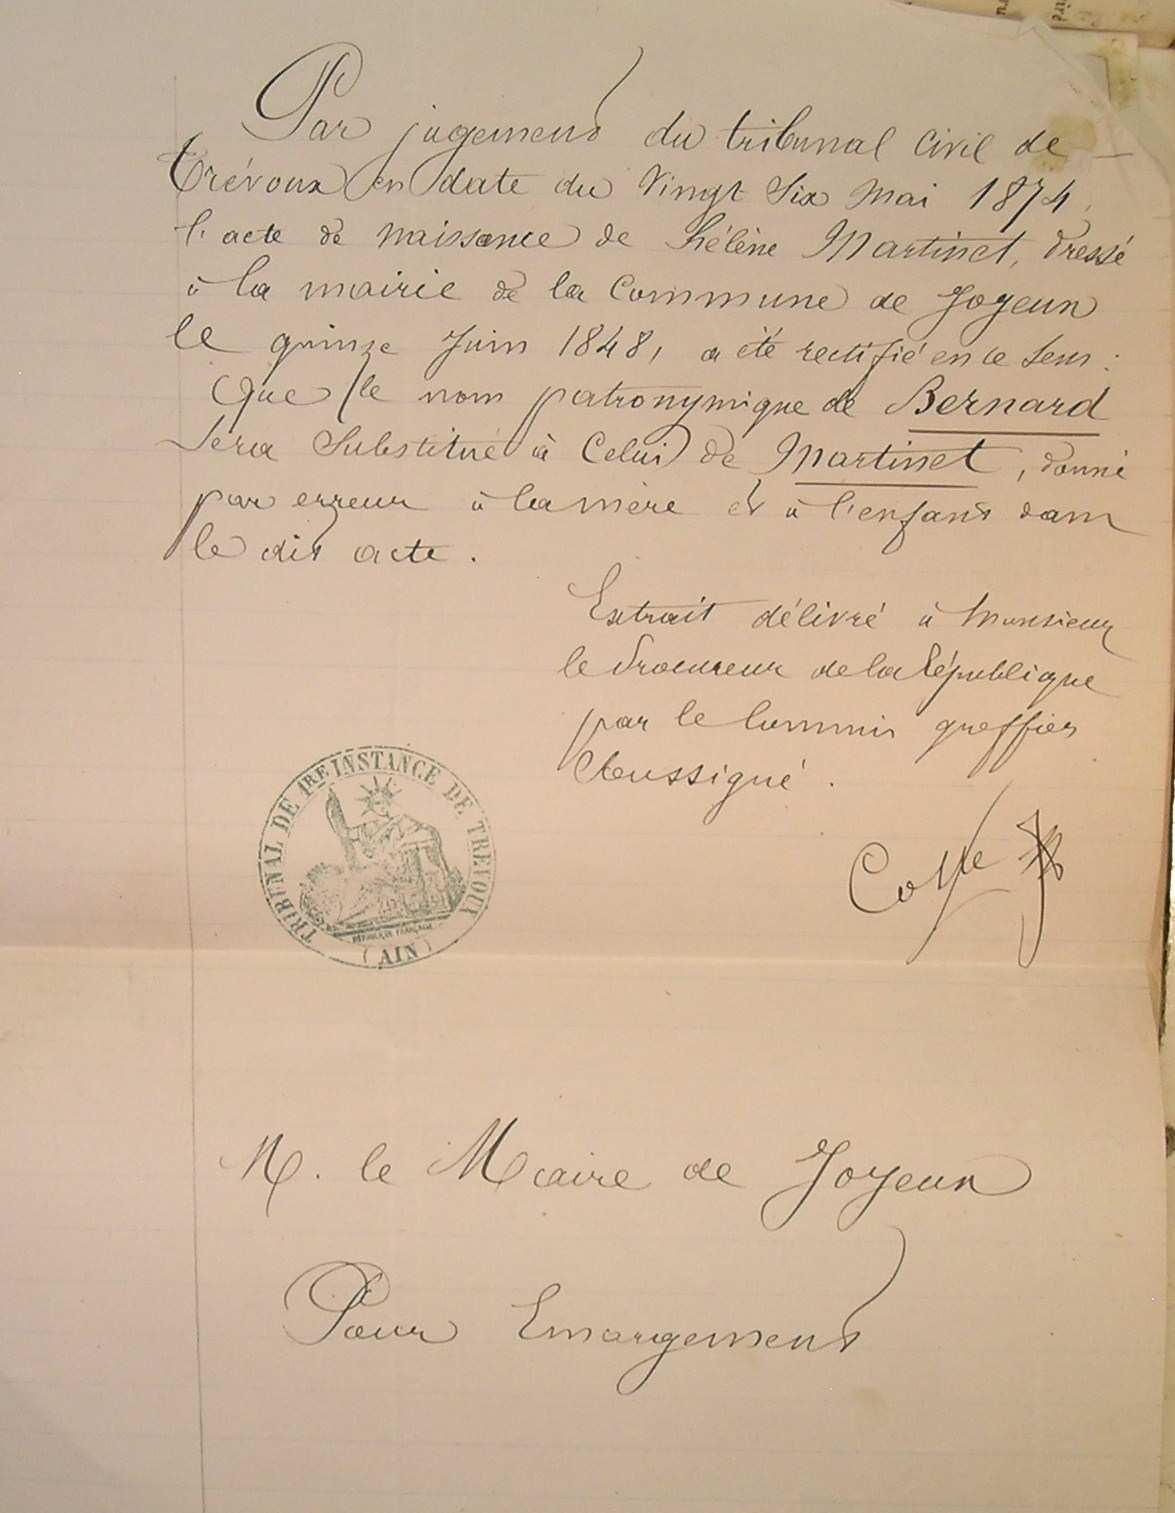 Par jugement du tribunal Civil de
trévoux en date du Vingt Six Mai 1874,
l'acte de naissance de Hélène Martinet, dressé
à la mairie de la Commune de Joyeux
le quinze Juin 1848, a été rectifié en ce sens :
Que le nom patronymique de Bernard
sera substitué à Celui de Martinet, donné
par erreur à la mère et à l'enfant dans
le dit acte.
Extrait délivré à Monsieur
le Procureur de la République
par le Commis greffier
Soussigné.
M. le Maire de Joyeux
Pour Emargement
TRIBUNAL DE 1RE INSTANCE DE TREVOUX
REPUBLIQUE FRANÇAISE
(AIN)